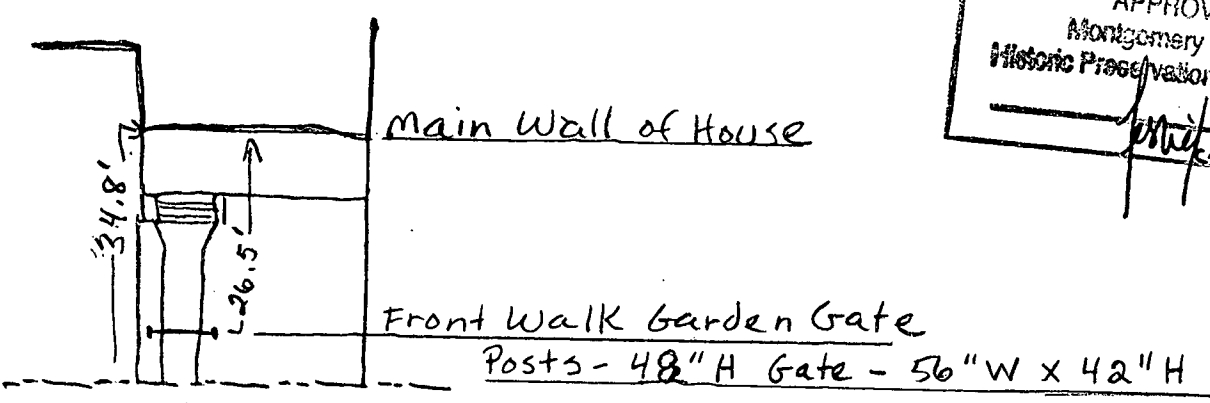 APPROV
Montgomery
Historic Preservation
Main Wall of House
34.8'
26.5'
Front Walk Garden Gate
Posts - 48" H Gate - 56" W x 42" H